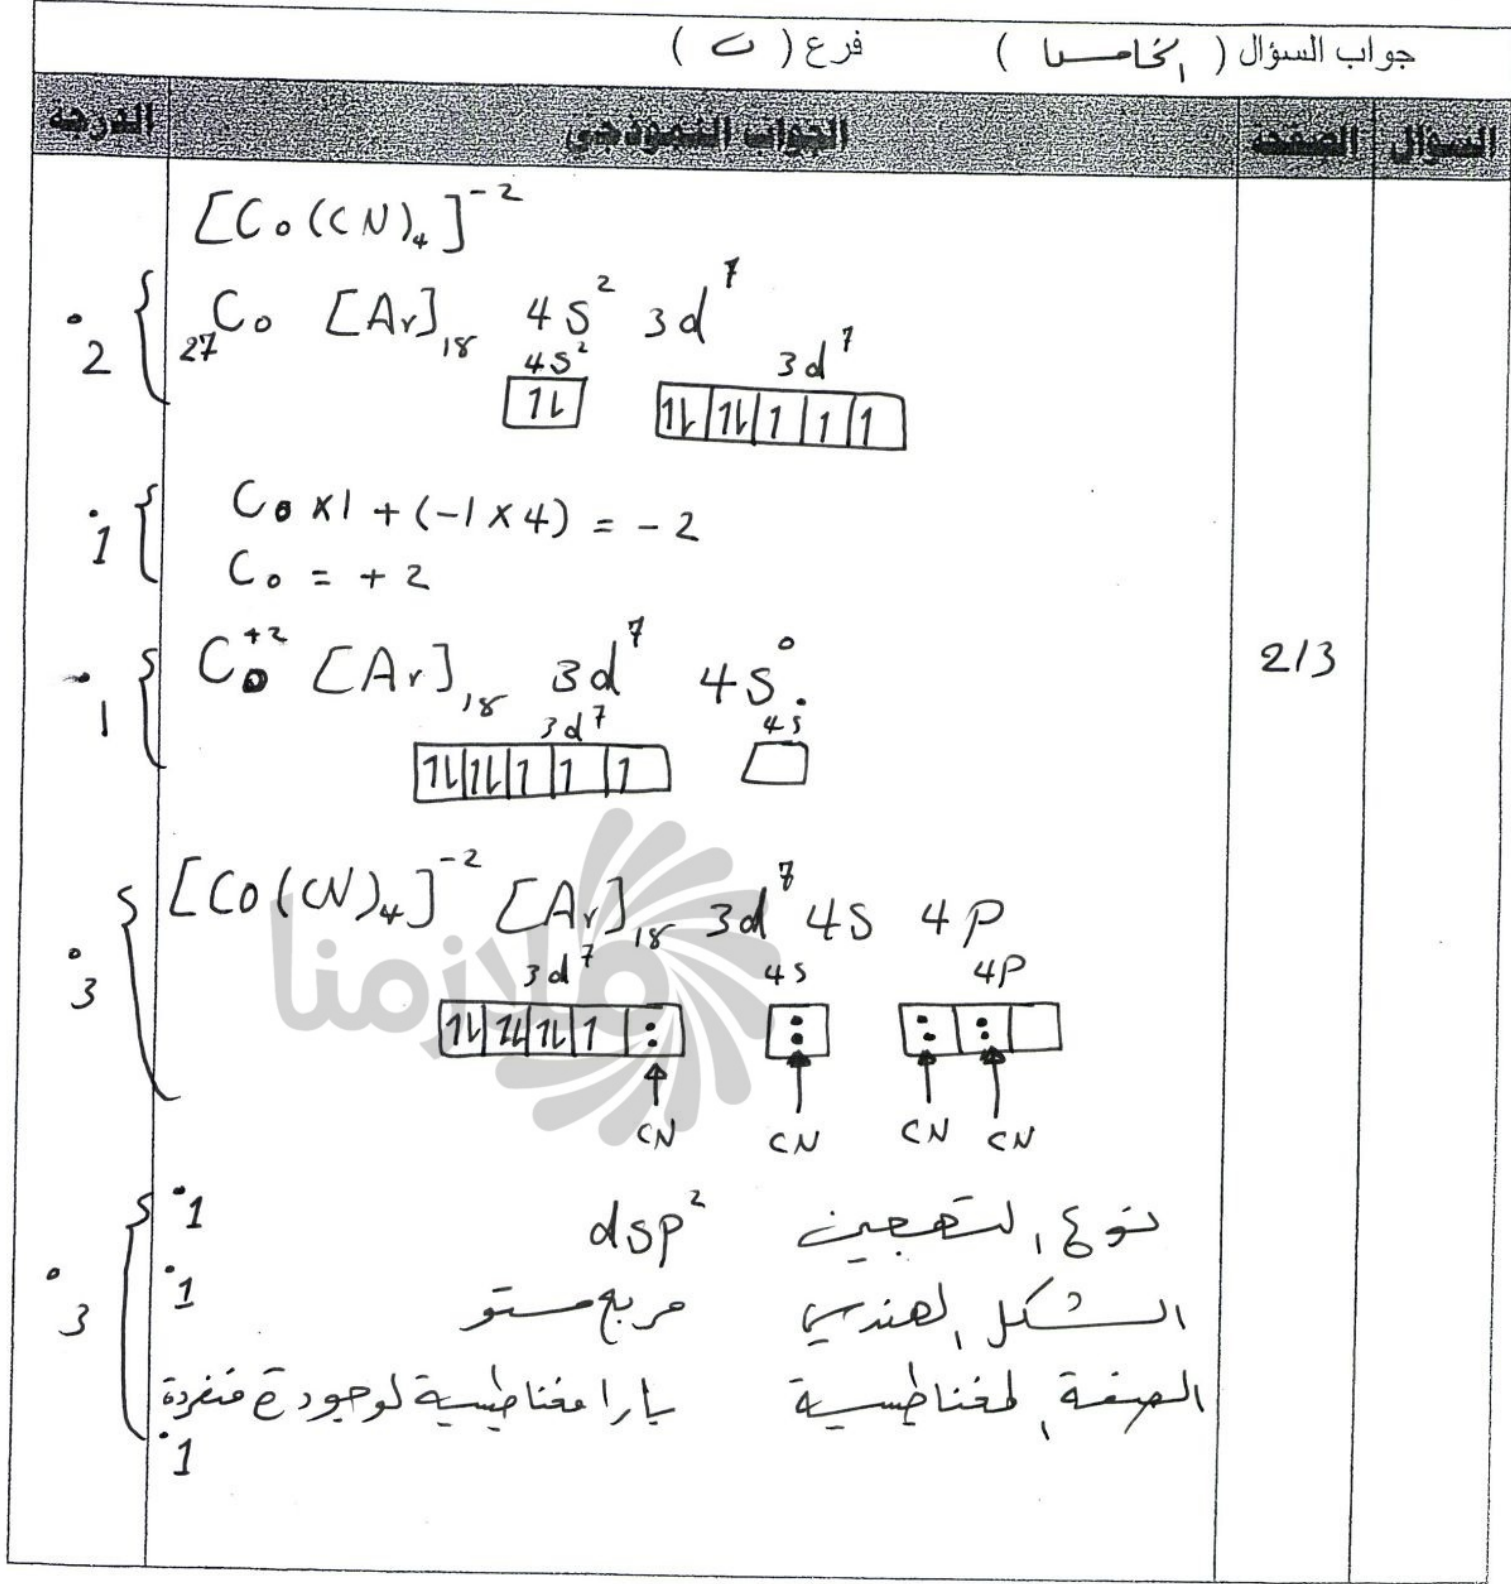 جواب السؤال ( الخامس ) فرع ( ب )
السؤال الصفحة الجواب النموذجي الدرجة
[Co(CN)₄]⁻²
2 ₂₇Co [Ar]₁₈ 4S² 3d⁷
4S² 3d⁷
1 Co×1 + (-1×4) = -2
Co = +2
1 Co⁺² [Ar]₁₈ 3d⁷ 4S⁰
3d⁷ 4s
213
3 [Co(CN)₄]⁻² [Ar]₁₈ 3d⁷ 4S 4P
3d⁷ 4s 4P
CN CN CN CN
3
نوع التهجين dsp² 1
الشكل الهندسي مربع مستو 1
الصفة المغناطيسية بارا مغناطيسية لوجود e منفردة
1
ملازمنا